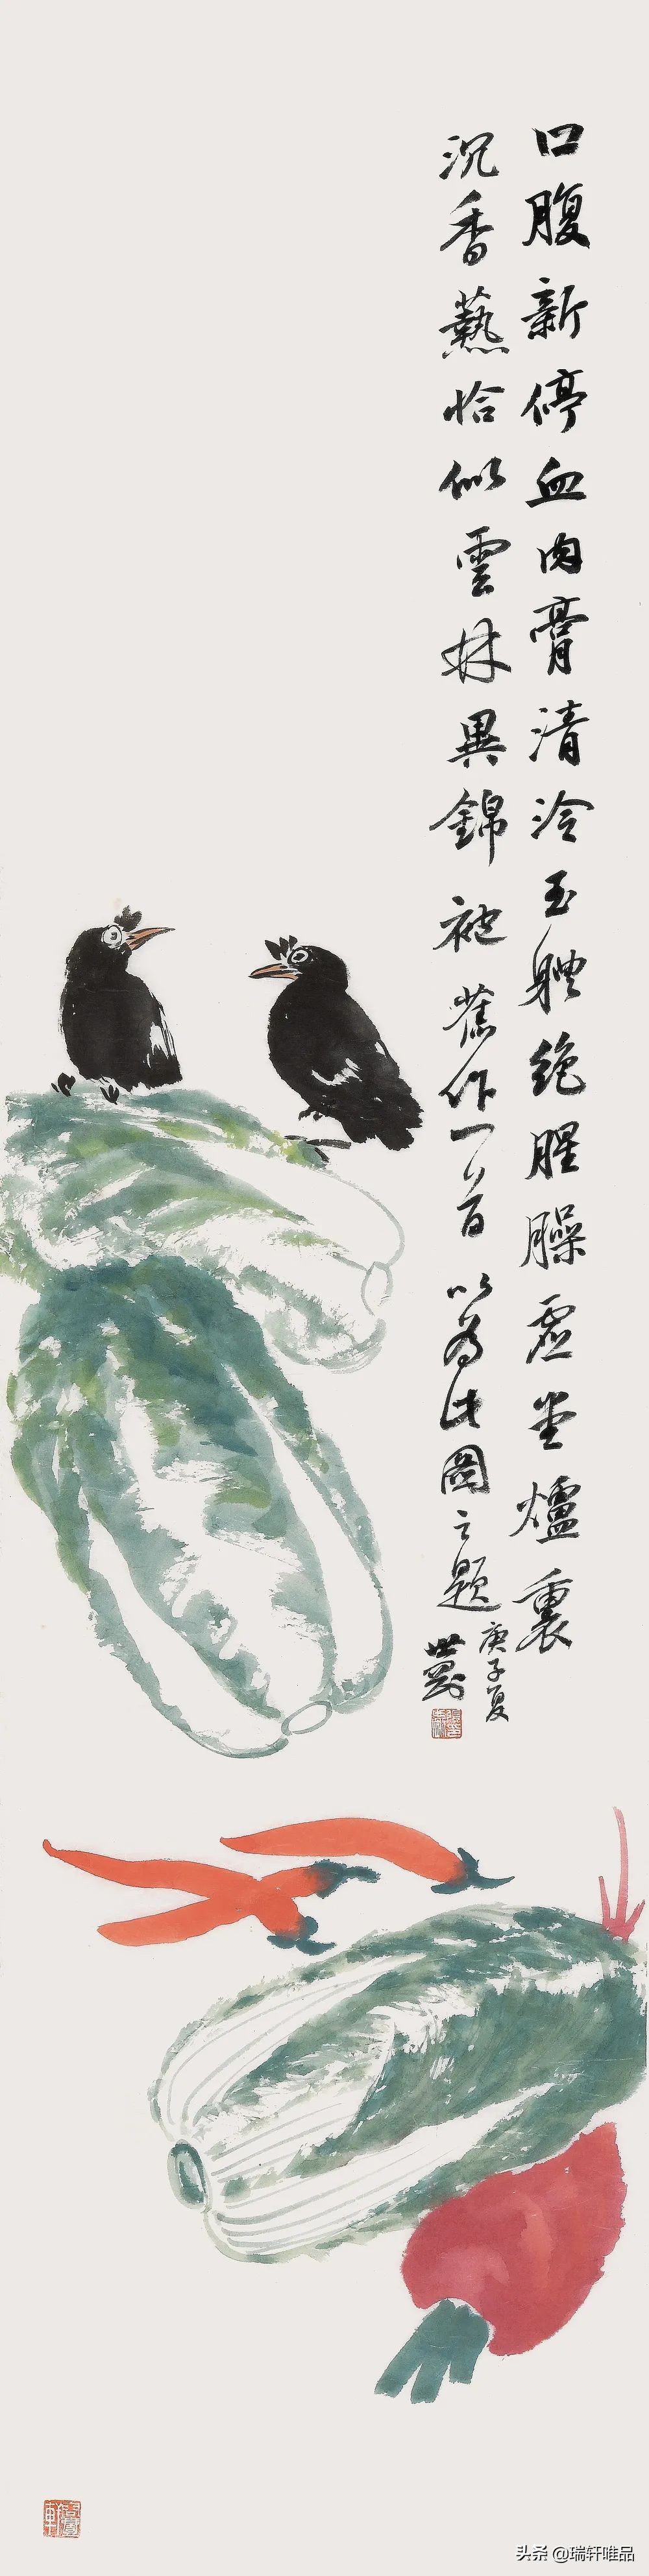 口腹新停血肉膏清泠玉體絕腥臊虛堂爐裏
沉香爇恰似雲林異錦袍舊作一首以為此圖之題
庚子夏
头条 @瑞轩唯品